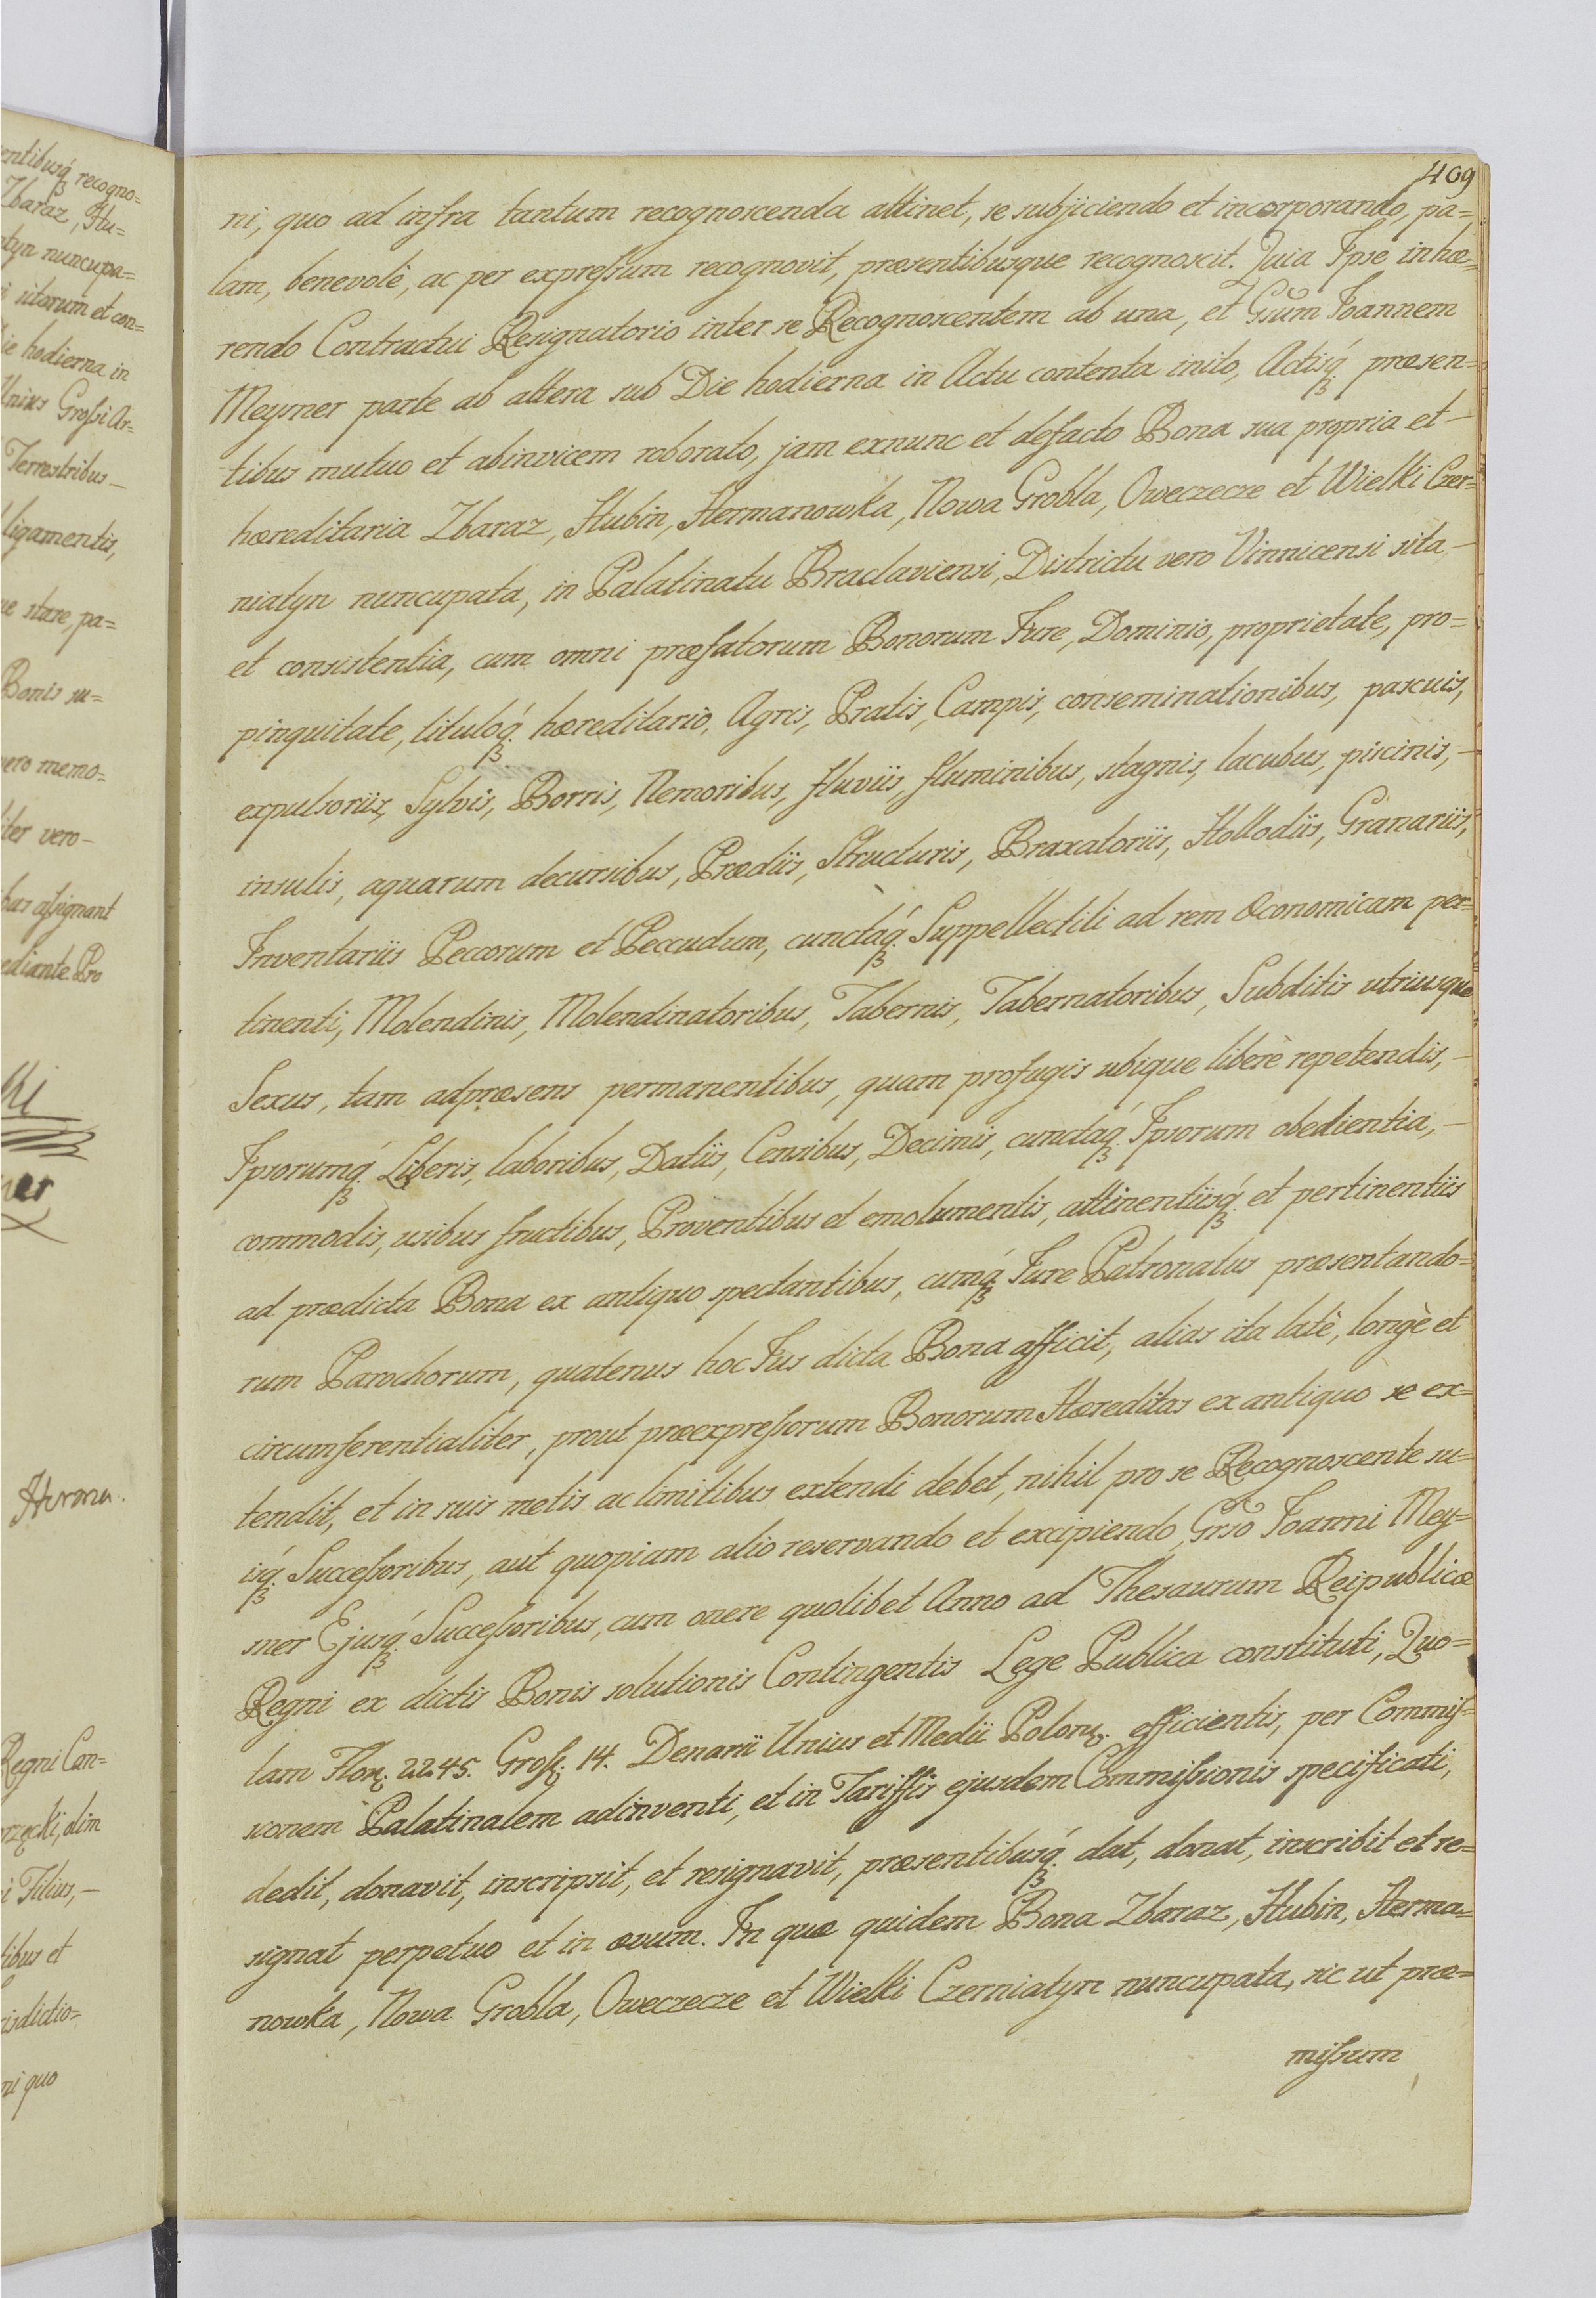 entibusq́ recogno=
Zbaraz, Hu=
atyn nuncupa=
i sitorum et con=
Die hodierna in
Unius Grossi Ar=
Terrestribus –
ligamentis,
ue stare, pa=
Bonis su=
vero memo=
liter vero –
has assignant
ediante. Pro
ner
Regni Can=
orzęcki, olim
i Filius, –
tibus et
risdictio=
ni quo
409
ni, quo ad infra tantum recognoscenda attinet, se subjiciendo et incorporando, pa=
lam, benevolè, ac per expressum recognovit, præsentibusque recognoscit. Quia Ipse inhæ=
rendo Contractui Resignatorio inter se Recognoscentem ab una, et Gsum Joannem
Meysner parte ab altera sub Die hodierna in Actu contenta inito, Actisq́ præsen=
tibus mutuo et abinvicem roborato, jam exnunc et defacto Bona sua propria et –
hæreditaria Zbaraz, Hubin, Hermanowka, Nowa Grobla, Oweczecze et Wielki Czer=
niatyn nuncupata, in Palatinatu Braclaviensi, Districtu vero Vinnicensi sita –
et consistentia, cum omni præfatorum Bonorum Jure, Dominio, proprietate, pro=
pinquitate, tituloq́ hæreditario, Agris, Pratis, Campis, conseminationibus, pascuis,
expulsoriis, Sylvis, Borris, Nemoribus, fluviis, fluminibus, stagnis, lacubus, piscinis, –
insulis, aquarum decursibus, Prædiis, Structuris, Braxatoriis, Hollodiis, Granariis,
Inventariis Peccorum et Peccudum, cunctaq́ Suppellectili ad rem Œconomicam per=
tinenti, Molendinis, Molendinatoribus, Tabernis, Tabernatoribus, Subditis utriusque
Sexus, tam adpræsens permanentibus, quam profugis ubique liberè repetendis, –
Ipsorumq́ Liberis, laboribus, Datiis, Censibus, Decimis, cunctaq́ Ipsorum obedientia, –
commodis, usibus fructibus, Proventibus et emolumentis, attinentiisq́ et pertinentiis
ad prædicta Bona ex antiquo spectantibus, cumq́ Jure Patronatus præsentando=
rum Parochorum, quatenus hoc Jus dicta Bona afficit, alias ita latè, longè et
circumferentialiter, prout præexpressorum Bonorum Hæreditas ex antiquo se ex=
tendit, et in suis metis ac limitibus extendi debet, nihil pro se Recognoscente su=
isq́ Successoribus, aut quopiam alio reservando et excipiendo, Gsso Joanni Mey=
sner Ejusq́ Successoribus, cum onere quolibet Anno ad Thesaurum Reipublicæ
Regni ex dictis Bonis solutionis Contingentis Lege Publica constituti, Quo=
tam Flor. 2245. Gross. 14. Denarii Unius et Medii Polon. efficientis, per Commis=
sionem Palatinalem adinventi, et in Tariffis ejusdem Commissionis specificati,
dedit, donavit, inscripsit, et resignavit, præsentibusq́ dat, donat, inscribit et re=
signat perpetuo et in ævum. In quæ quidem Bona Zbaraz, Hubin, Herma=
nowka, Nowa Grobla, Oweczecze et Wielki Czerniatyn nuncupata, sic ut præ=
missum